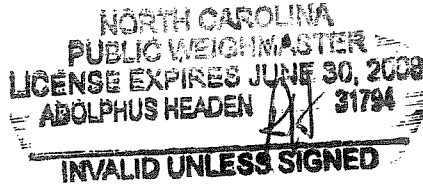 NORTH CAROLINA
PUBLIC WEIGHMASTER
LICENSE EXPIRES JUNE 30, 2009
ADOLPHUS HEADEN 31794
INVALID UNLESS SIGNED